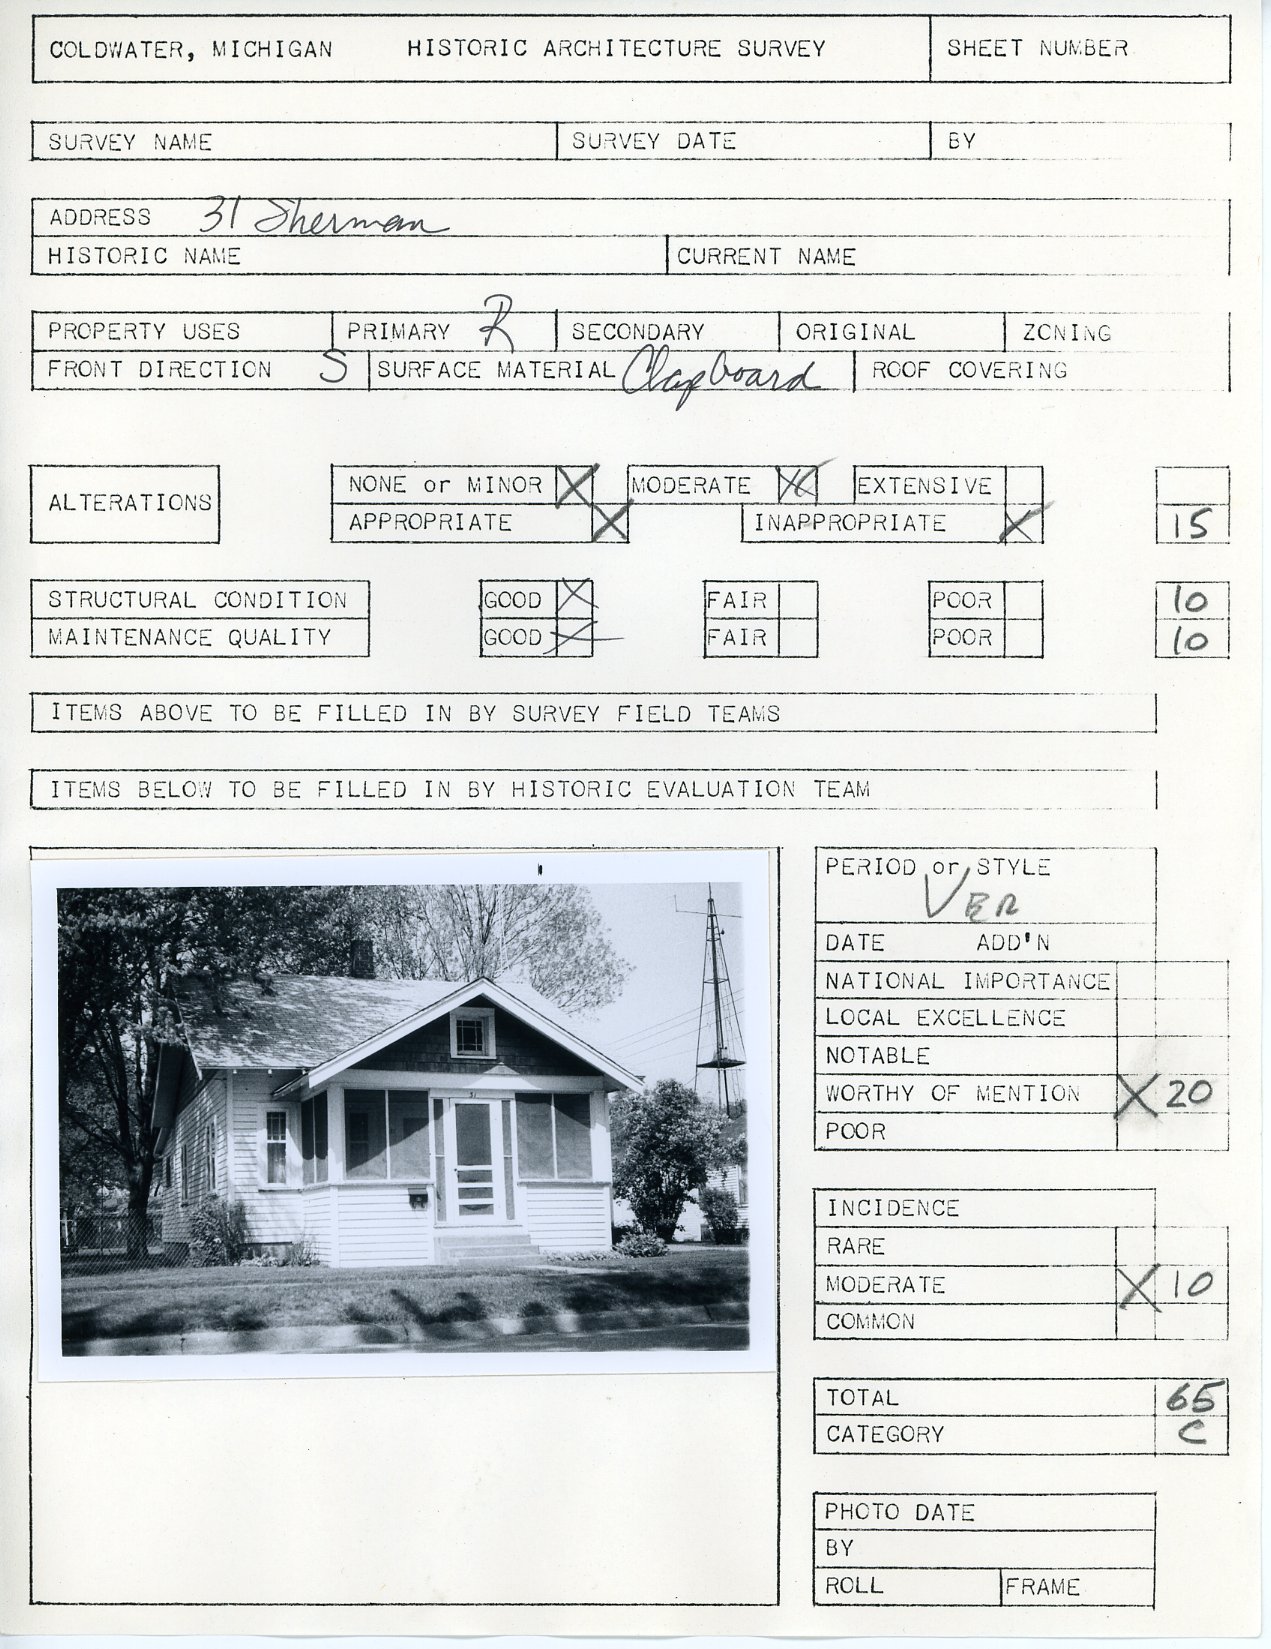 COLDWATER, MICHIGAN HISTORIC ARCHITECTURE SURVEY SHEET NUMBER
SURVEY NAME SURVEY DATE BY
ADDRESS 31 Sherman
HISTORIC NAME CURRENT NAME
PROPERTY USES PRIMARY R SECONDARY ORIGINAL ZONING
FRONT DIRECTION S SURFACE MATERIAL Clapboard ROOF COVERING
ALTERATIONS NONE or MINOR X MODERATE X EXTENSIVE
APPROPRIATE X INAPPROPRIATE X 15
STRUCTURAL CONDITION GOOD X FAIR POOR 10
MAINTENANCE QUALITY GOOD X FAIR POOR 10
ITEMS ABOVE TO BE FILLED IN BY SURVEY FIELD TEAMS
ITEMS BELOW TO BE FILLED IN BY HISTORIC EVALUATION TEAM
31
PERIOD or STYLE
VER
DATE ADD'N
NATIONAL IMPORTANCE
LOCAL EXCELLENCE
NOTABLE
WORTHY OF MENTION X 20
POOR
INCIDENCE
RARE
MODERATE X 10
COMMON
TOTAL 65
CATEGORY C
PHOTO DATE
BY
ROLL FRAME